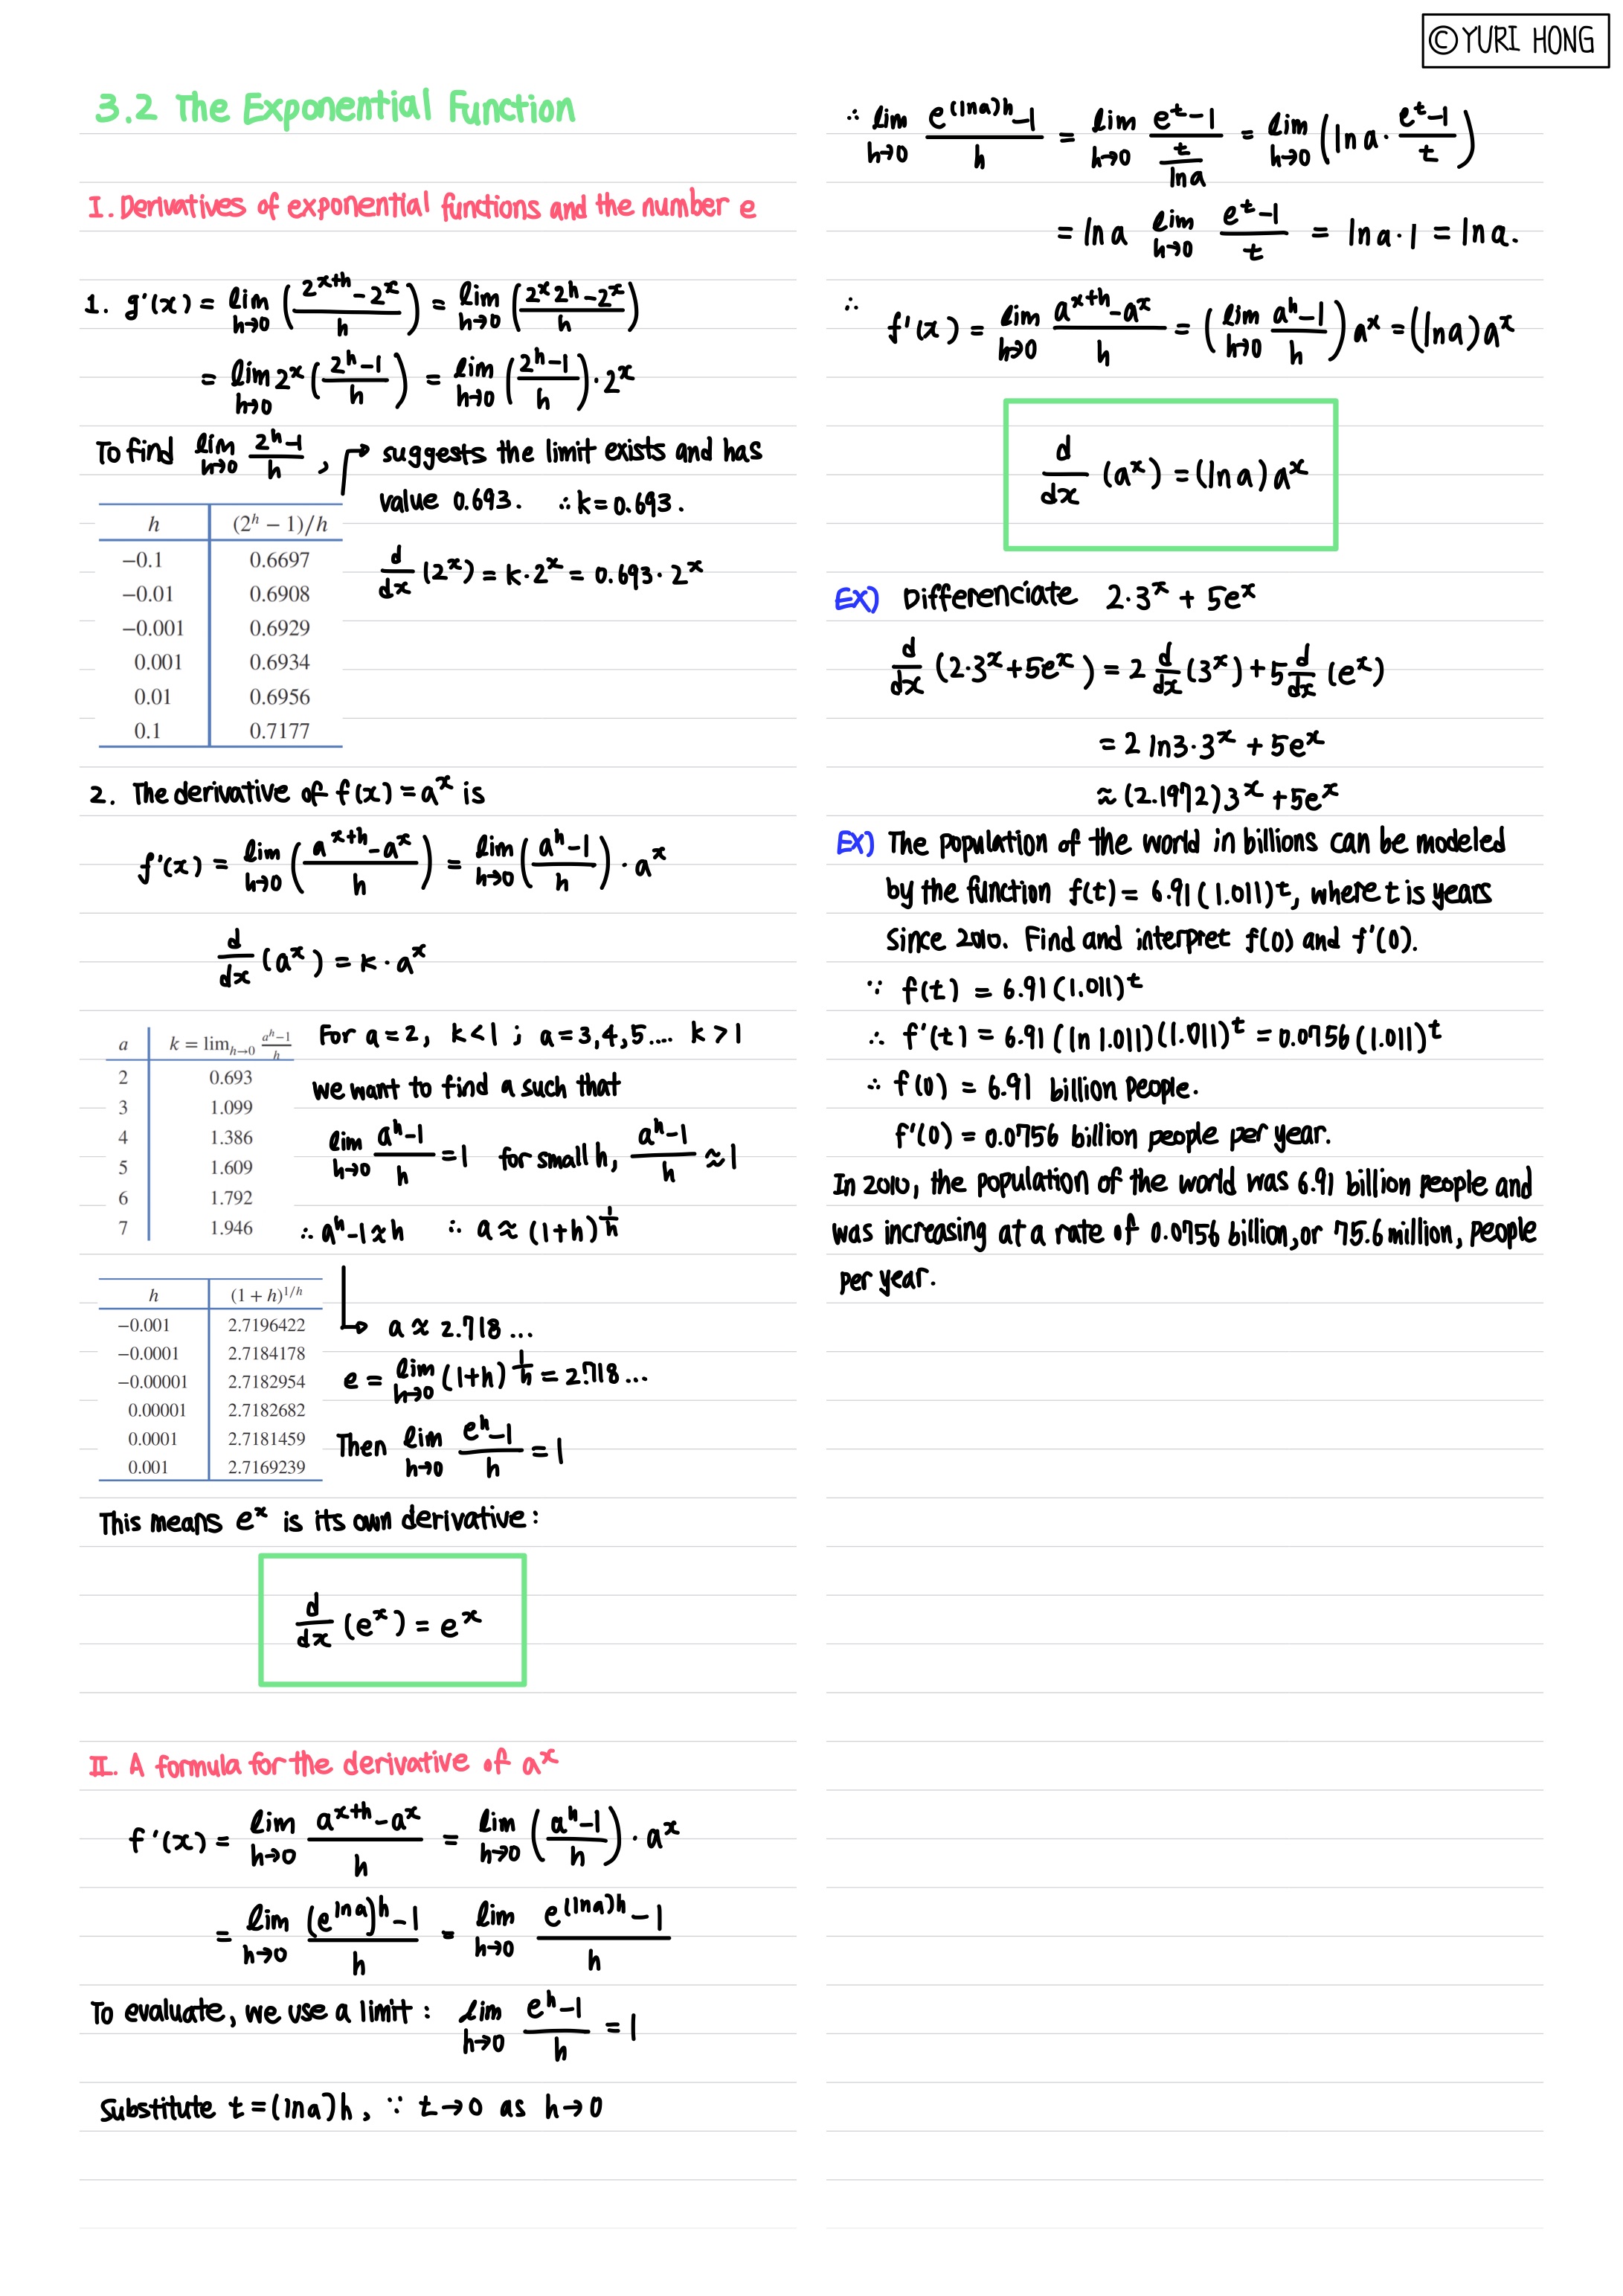 ©YURI HONG
3.2 The Exponential Function
I. Derivatives of exponential functions and the number e
1. g'(x) = lim h→0 ((2^(x+h) - 2^x)/h) = lim h→0 ((2^x 2^h - 2^x)/h)
= lim h→0 2^x ((2^h - 1)/h) = lim h→0 ((2^h - 1)/h) · 2^x
To find lim h→0 (2^h - 1)/h , → suggests the limit exists and has
value 0.693. ∴ k = 0.693.
d/dx (2^x) = k · 2^x = 0.693 · 2^x
h (2^h − 1)/h
−0.1 0.6697
−0.01 0.6908
−0.001 0.6929
0.001 0.6934
0.01 0.6956
0.1 0.7177
2. The derivative of f(x) = a^x is
f'(x) = lim h→0 ((a^(x+h) - a^x)/h) = lim h→0 ((a^h - 1)/h) · a^x
d/dx (a^x) = k · a^x
a k = lim h→0 (a^h − 1)/h
2 0.693
3 1.099
4 1.386
5 1.609
6 1.792
7 1.946
For a = 2, k < 1 ; a = 3,4,5.... k > 1
we want to find a such that
lim h→0 (a^h - 1)/h = 1 for small h, (a^h - 1)/h ≈ 1
∴ a^h - 1 ≈ h ∴ a ≈ (1+h)^(1/h)
h (1 + h)^(1/h)
−0.001 2.7196422
−0.0001 2.7184178
−0.00001 2.7182954
0.00001 2.7182682
0.0001 2.7181459
0.001 2.7169239
→ a ≈ 2.718 ...
e = lim h→0 (1+h)^(1/h) = 2.718 ...
Then lim h→0 (e^h - 1)/h = 1
This means e^x is its own derivative:
d/dx (e^x) = e^x
II. A formula for the derivative of a^x
f'(x) = lim h→0 (a^(x+h) - a^x)/h = lim h→0 ((a^h - 1)/h) · a^x
= lim h→0 ((e^(ln a))^h - 1)/h = lim h→0 (e^((ln a)h) - 1)/h
To evaluate, we use a limit: lim h→0 (e^h - 1)/h = 1
Substitute t = (ln a)h, ∵ t→0 as h→0
∴ lim h→0 (e^((ln a)h) - 1)/h = lim h→0 (e^t - 1)/(t/ln a) = lim h→0 (ln a · (e^t - 1)/t)
= ln a lim h→0 (e^t - 1)/t = ln a · 1 = ln a.
∴ f'(x) = lim h→0 (a^(x+h) - a^x)/h = (lim h→0 (a^h - 1)/h) a^x = (ln a) a^x
d/dx (a^x) = (ln a) a^x
EX) Differenciate 2·3^x + 5e^x
d/dx (2·3^x + 5e^x) = 2 d/dx (3^x) + 5 d/dx (e^x)
= 2 ln3·3^x + 5e^x
≈ (2.1972)3^x + 5e^x
EX) The population of the world in billions can be modeled
by the function f(t) = 6.91(1.011)^t, where t is years
since 2010. Find and interpret f(0) and f'(0).
∵ f(t) = 6.91(1.011)^t
∴ f'(t) = 6.91(ln 1.011)(1.011)^t = 0.0756(1.011)^t
∴ f(0) = 6.91 billion people.
f'(0) = 0.0756 billion people per year.
In 2010, the population of the world was 6.91 billion people and
was increasing at a rate of 0.0756 billion, or 75.6 million, people
per year.